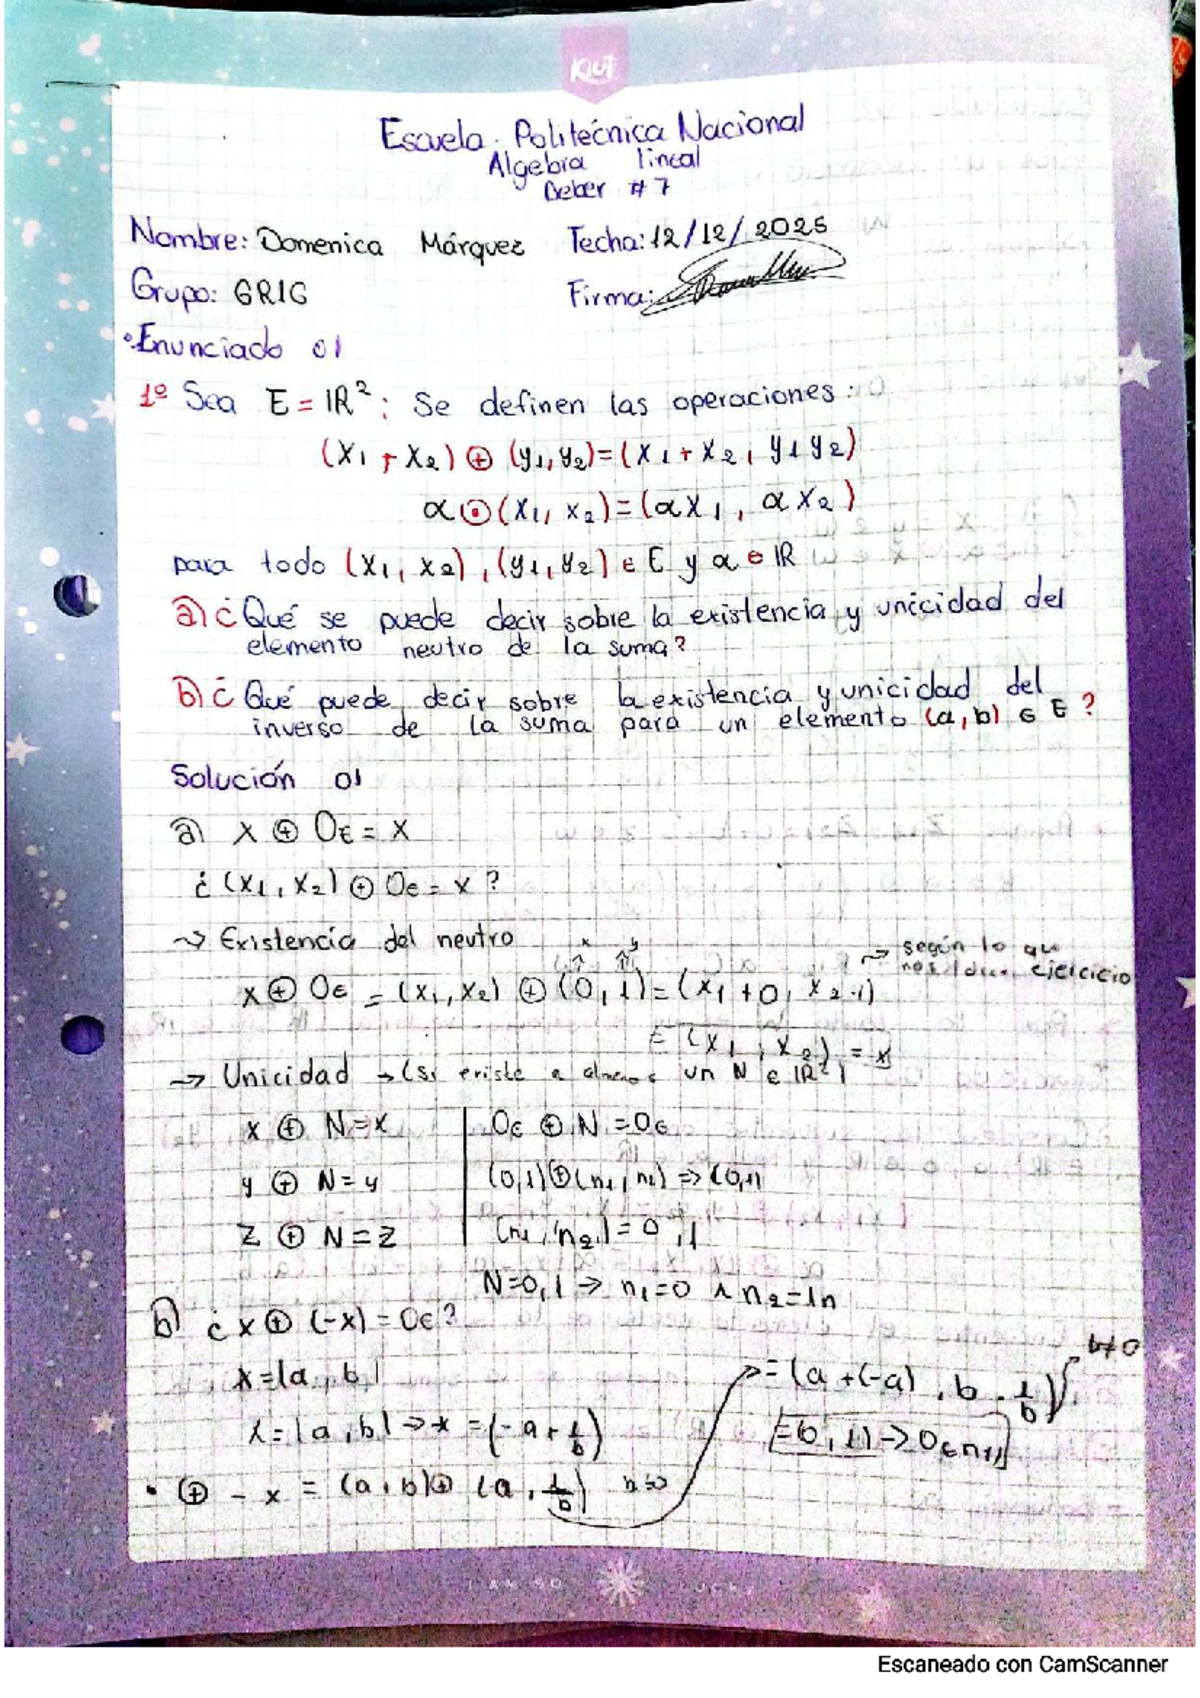 KIUT
Escuela Politécnica Nacional
Algebra lineal
Deber #7
Nombre: Domenica Márquez Fecha: 12/12/2025
Grupo: GR1G Firma:
• Enunciado 01
1º Sea E = IR²: Se definen las operaciones:
(x₁ + x₂) ⊕ (y₁, y₂) = (x₁ + x₂, y₁ y₂)
α ⊙ (x₁, x₂) = (αx₁, αx₂)
para todo (x₁, x₂), (y₁, y₂) ∈ E y α ∈ IR
a) ¿Qué se puede decir sobre la existencia y unicidad del
elemento neutro de la suma?
b) ¿Qué puede decir sobre la existencia y unicidad del
inverso de la suma para un elemento (a, b) ∈ E?
Solución 01
a) x ⊕ O∈ = x
¿(x₁, x₂) ⊕ O∈ = x?
⤳ Existencia del neutro
x y
→ según lo que
nos ejercicio
x ⊕ O∈ = (x₁, x₂) ⊕ (0, 1) = (x₁ + 0, x₂ · 1)
= (x₁, x₂) = x
→ Unicidad → (si existe un N ∈ IR²)
x ⊕ N = x | O∈ ⊕ N = O∈
y ⊕ N = y | (0,1) ⊕ (n₁, n₂) => (0,1)
z ⊕ N = z | (n₁, n₂) = 0, 1
N = 0, 1 → n₁ = 0 ∧ n₂ = 1n
b) ¿x ⊕ (-x) = O∈?
x = (a, b)
x = (a, b) => x = (-a + 1/b)
• ⊕ - x = (a, b) ⊕ (a, 1/b)
= (a + (-a), b · 1/b) b≠0
= (0, 1) → O∈
I AM SO LUCKY
Escaneado con CamScanner